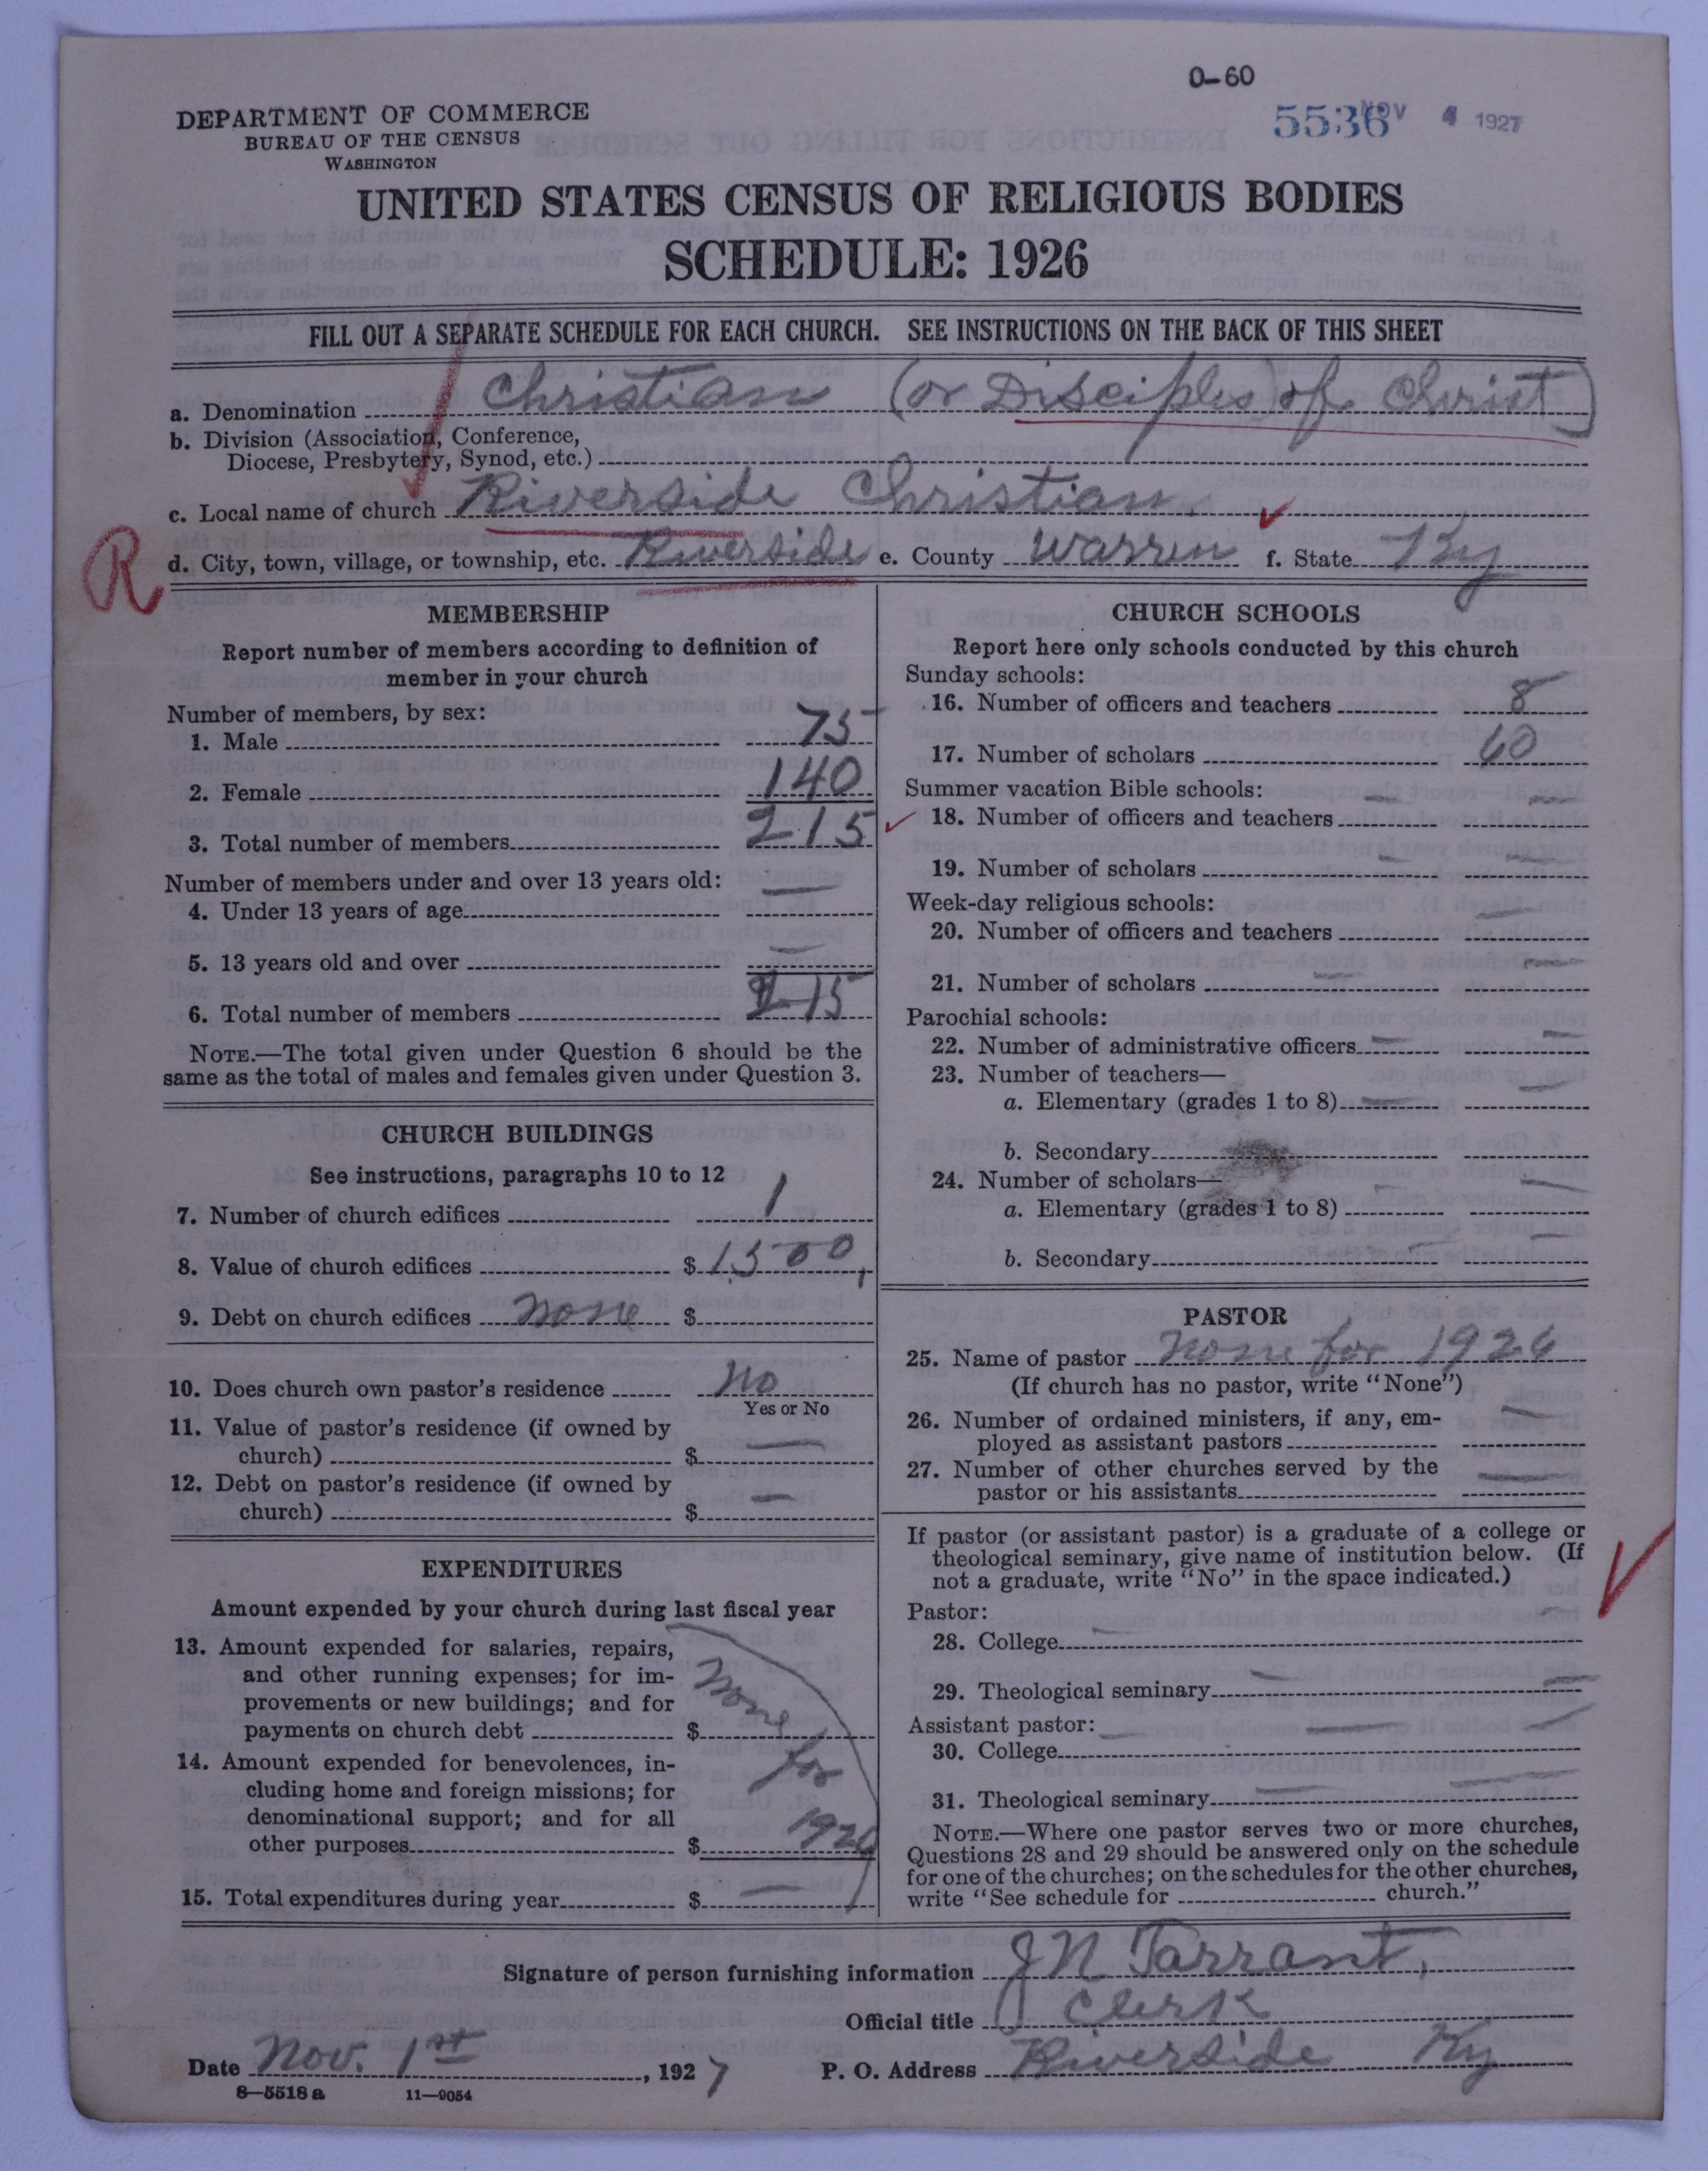 0-60
5536 NOV 4 1927
DEPARTMENT OF COMMERCE
BUREAU OF THE CENSUS
WASHINGTON
UNITED STATES CENSUS OF RELIGIOUS BODIES
SCHEDULE: 1926
FILL OUT A SEPARATE SCHEDULE FOR EACH CHURCH. SEE INSTRUCTIONS ON THE BACK OF THIS SHEET
a. Denomination Christian (or Disciples) of Christ)
b. Division (Association, Conference,
Diocese, Presbytery, Synod, etc.)
c. Local name of church Riverside Christian.
R
d. City, town, village, or township, etc. Riverside e. County Warren f. State Ky
MEMBERSHIP
Report number of members according to definition of
member in your church
Number of members, by sex:
1. Male 75
2. Female 140
3. Total number of members 215
Number of members under and over 13 years old:
4. Under 13 years of age —
5. 13 years old and over —
6. Total number of members 215
NOTE.—The total given under Question 6 should be the
same as the total of males and females given under Question 3.
CHURCH BUILDINGS
See instructions, paragraphs 10 to 12
7. Number of church edifices 1
8. Value of church edifices $ 1500,
9. Debt on church edifices none $
10. Does church own pastor's residence No
Yes or No
11. Value of pastor's residence (if owned by
church) $ —
12. Debt on pastor's residence (if owned by
church) $ —
EXPENDITURES
Amount expended by your church during last fiscal year
13. Amount expended for salaries, repairs,
and other running expenses; for im-
provements or new buildings; and for
payments on church debt $ none
14. Amount expended for benevolences, in-
cluding home and foreign missions; for
denominational support; and for all
other purposes $ for 1926
15. Total expenditures during year $ —
CHURCH SCHOOLS
Report here only schools conducted by this church
Sunday schools:
16. Number of officers and teachers 8
17. Number of scholars 60
Summer vacation Bible schools:
18. Number of officers and teachers —
19. Number of scholars —
Week-day religious schools:
20. Number of officers and teachers —
21. Number of scholars —
Parochial schools:
22. Number of administrative officers —
23. Number of teachers—
a. Elementary (grades 1 to 8) —
b. Secondary
24. Number of scholars—
a. Elementary (grades 1 to 8) —
b. Secondary —
PASTOR
25. Name of pastor None for 1926
(If church has no pastor, write "None")
26. Number of ordained ministers, if any, em-
ployed as assistant pastors —
27. Number of other churches served by the
pastor or his assistants —
If pastor (or assistant pastor) is a graduate of a college or
theological seminary, give name of institution below. (If
not a graduate, write "No" in the space indicated.)
Pastor:
28. College —
29. Theological seminary —
Assistant pastor:
30. College —
31. Theological seminary —
NOTE.—Where one pastor serves two or more churches,
Questions 28 and 29 should be answered only on the schedule
for one of the churches; on the schedules for the other churches,
write "See schedule for church."
Signature of person furnishing information J N Tarrant,
Official title Clerk
Date Nov. 1st, 1927 P. O. Address Riverside Ky
8—5518 a 11—9054